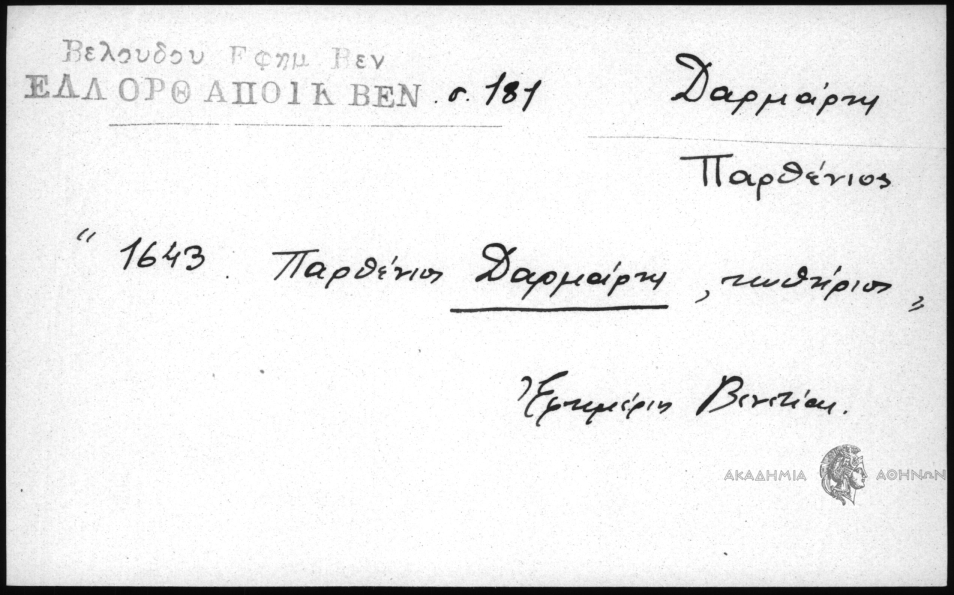 Βελουδου Εφημ Βεν
ΕΛΛ ΟΡΘ ΑΠΟΙΚ ΒΕΝ. σ. 181
Δαρμάρης
Παρθένιος
" 1643. Παρθένιος Δαρμάρης, "
Ἐφημέρις Βενετίας.
ΑΚΑΔΗΜΙΑ ΑΘΗΝΩΝ